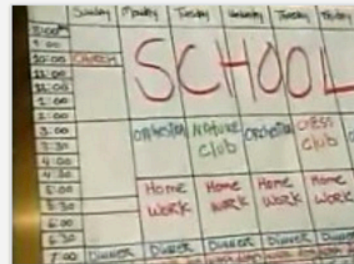 Sunday Monday Tuesday Wednesday Thursday Friday
8:00
9:00
10:00 CHURCH
11:00
12:00
1:00
2:00
SCHOOL
3:00 Orchestra Nature Club Orchestra Chess Club
3:30
4:00
4:30
5:00 Home Work Home Work Home Work Home Work
5:30
6:00
6:30
7:00 Dinner Dinner Dinner Dinner Dinner